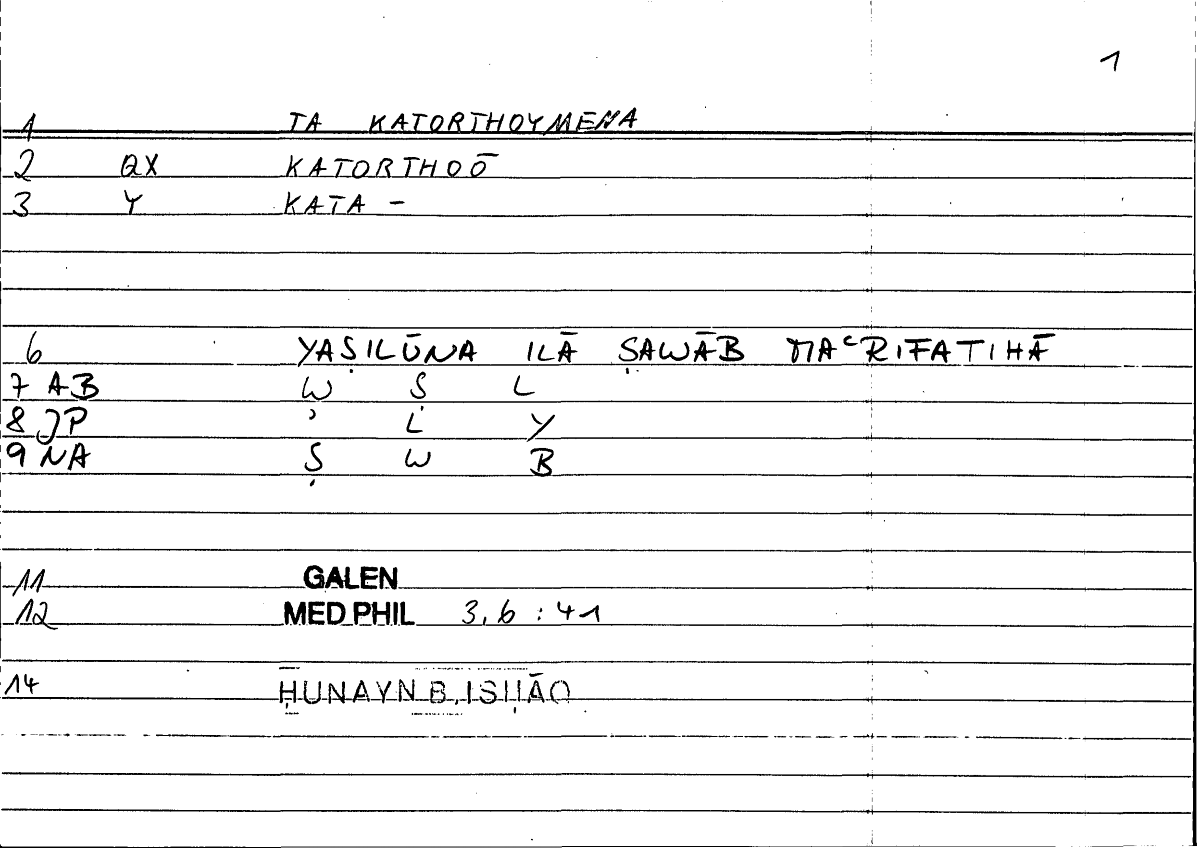 1
1 TA KATORTHOYMENA
2 QX KATORTHOŌ
3 Y KATA –
6 YAṢILŪNA ILĀ ṢAWĀB MAʿRIFATIHĀ
7 AB W Ṣ L
8 JP ʾ L Y
9 NA Ṣ W B
11 GALEN
12 MED PHIL 3,6 : 41
14 ḤUNAYN B. ISḤĀQ